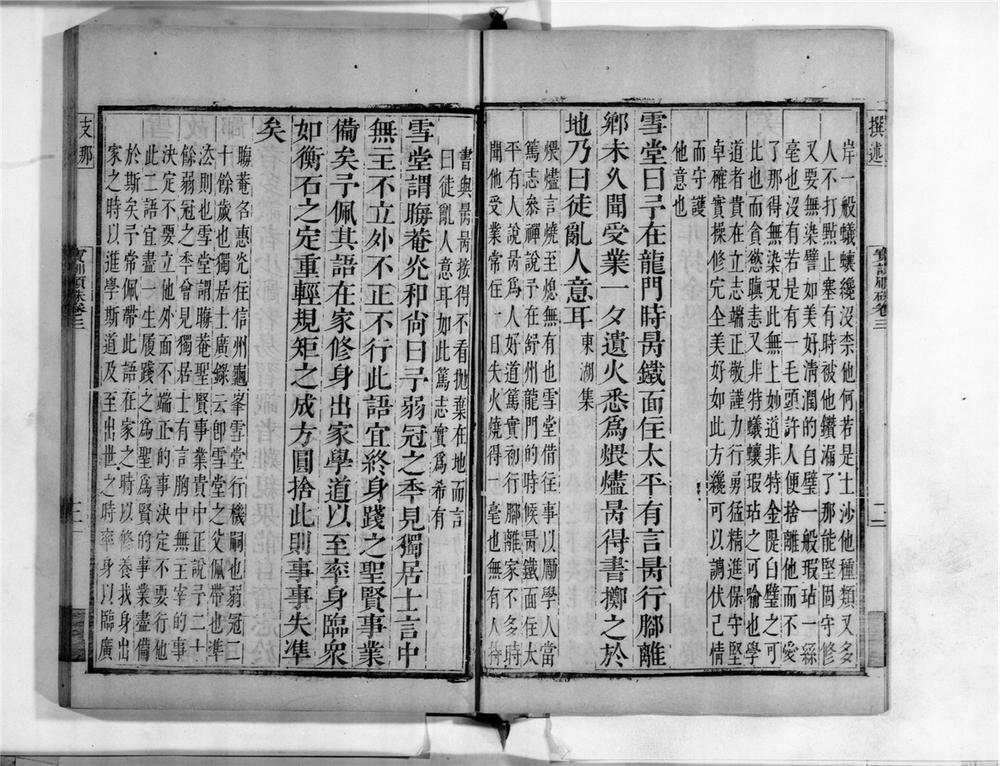 撰述
寶訓順硃卷三
二
岸一般蟻蠰纔沒柰他何若是土沙他種類又多
人不打㸃止塞有時被他鑽漏了那能堅固守修
又要無染譬如美好清潤的白璧一般瑕玷一絲
毫也沒有若是有一毛頭許人便捨離他而不愛
了那得無染況此無上妙道非特金隄白璧之可
比也而貪慾瞋恚又非特蟻蠰瑕玷之可喻也學
道者貴在立志端正敬謹力行勇猛精進保守堅
卓確實操修完全美好如此方纔可以調伏己情
而守護
他意也
雪堂曰予在龍門時昺鐵面住太平有言昺行腳離
鄉未久聞受業一夕遺火悉爲煨燼昺得書擲之於
地乃曰徒亂人意耳 東湖集
煨燼言燒至熄無有也雪堂借往事以勵學人當
篤志叅禪說予在舒州龍門的時候昺鐵面住太
平有人說昺爲人好道篤實初行腳離家不多時
聞他受業常住一日失火燒得一毫也無有人持
書與昺昺接得不看拋棄在地而言
曰徒亂人意耳如此篤志實爲希有
雪堂謂晦菴光和尚曰予弱冠之年見獨居士言中
無主不立外不正不行此語宜終身踐之聖賢事業
備矣予佩其語在家修身出家學道以至率身臨衆
如衡石之定重輕規矩之成方圓捨此則事事失準
矣
晦菴名惠光住信州龜峯雪堂行機嗣也弱冠二
十餘歲也獨居士廣錄云卽雪堂之父佩帶也準
法則也雪堂謂晦菴聖賢事業貴中正說予二十
餘弱冠之年曾見獨居士有言胸中無主宰的事
決定不要立他外面不端正的事決定不要行他
此二語宜盡一生履踐之爲聖爲賢的事業盡備
於斯矣予常佩帶此語在家之時以修養我身出
家之時以進學斯道及至出世之時率身以臨廣
支那
寶訓順硃卷三
三